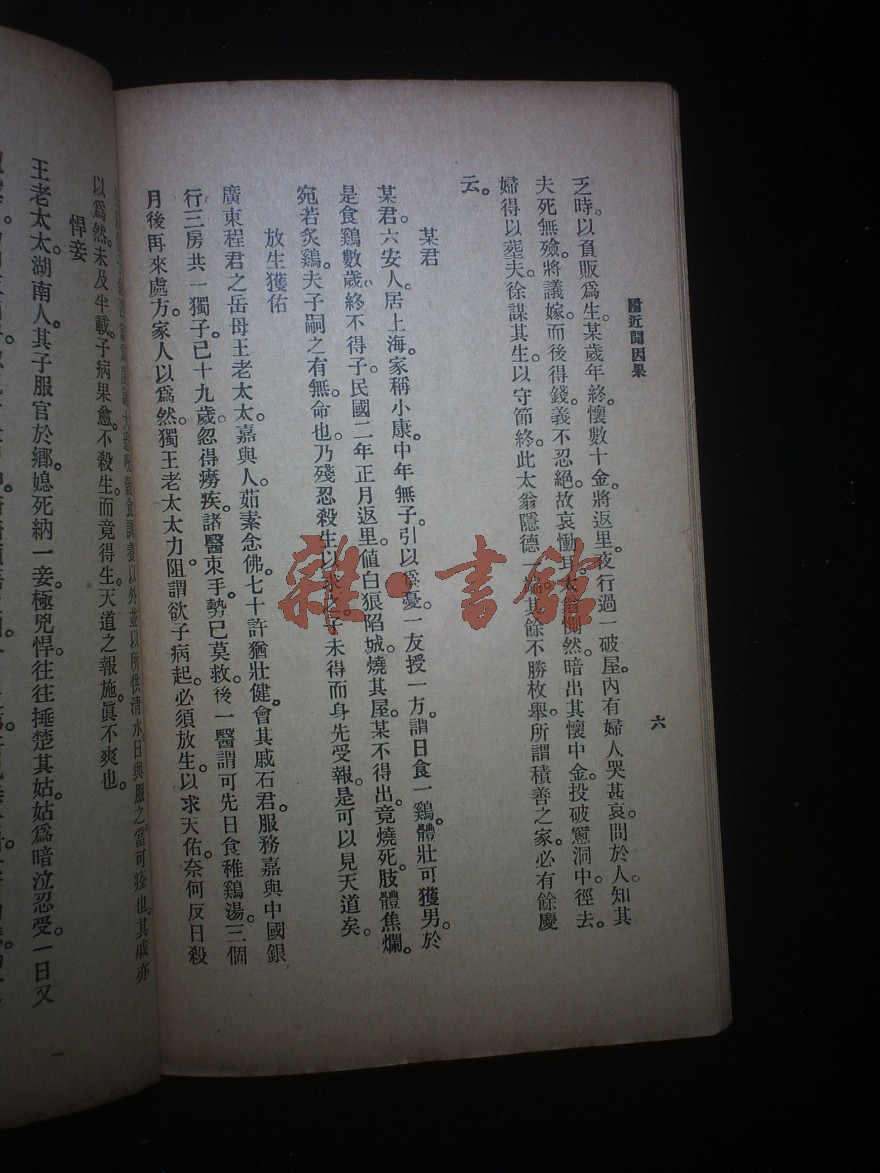 附近聞因果
六
乏時。以負販爲生。某歲年終。懷數十金。將返里。夜行過一破屋。內有婦人哭甚哀。問於人。知其
夫死無殮。將議嫁。而後得錢。義不忍絕。故哀慟耳。太翁惻然。暗出其懷中金。投破窻洞中。徑去。
婦得以葬夫。徐謀其生。以守節終。此太翁隱德一端。其餘不勝枚舉。所謂積善之家。必有餘慶
云。
某君
某君。六安人。居上海。家稱小康。中年無子。引以爲憂。一友授一方。謂日食一鷄。體壯可獲男。於
是食鷄數歲。終不得子。民國二年正月返里。值白狼陷城。燒其屋。某不得出。竟燒死。肢體焦爛。
宛若炙鷄。夫子嗣之有無。命也。乃殘忍殺生以求之。子未得而身先受報。是可以見天道矣。
放生獲佑
廣東程君之岳母王老太太。嘉興人。茹素念佛。七十許猶壯健。會其戚石君。服務嘉興中國銀
行。三房共一獨子。已十九歲。忽得癆疾。諸醫束手。勢已莫救。後一醫謂可先日食稚鷄湯。三個
月後再來處方。家人以爲然。獨王老太太力阻。謂欲子病起。必須放生。以求天佑。奈何反日殺
以外。並以所供清水。日與服之。當可痊也。其戚亦
以爲然。未及半載。子病果愈。不殺生。而竟得生。天道之報施。眞不爽也。
悍妾
王老太太。湖南人。其子服官於鄉。媳死納一妾。極兇悍。往往捶楚其姑。姑爲暗泣忍受。一日又
雜·書館